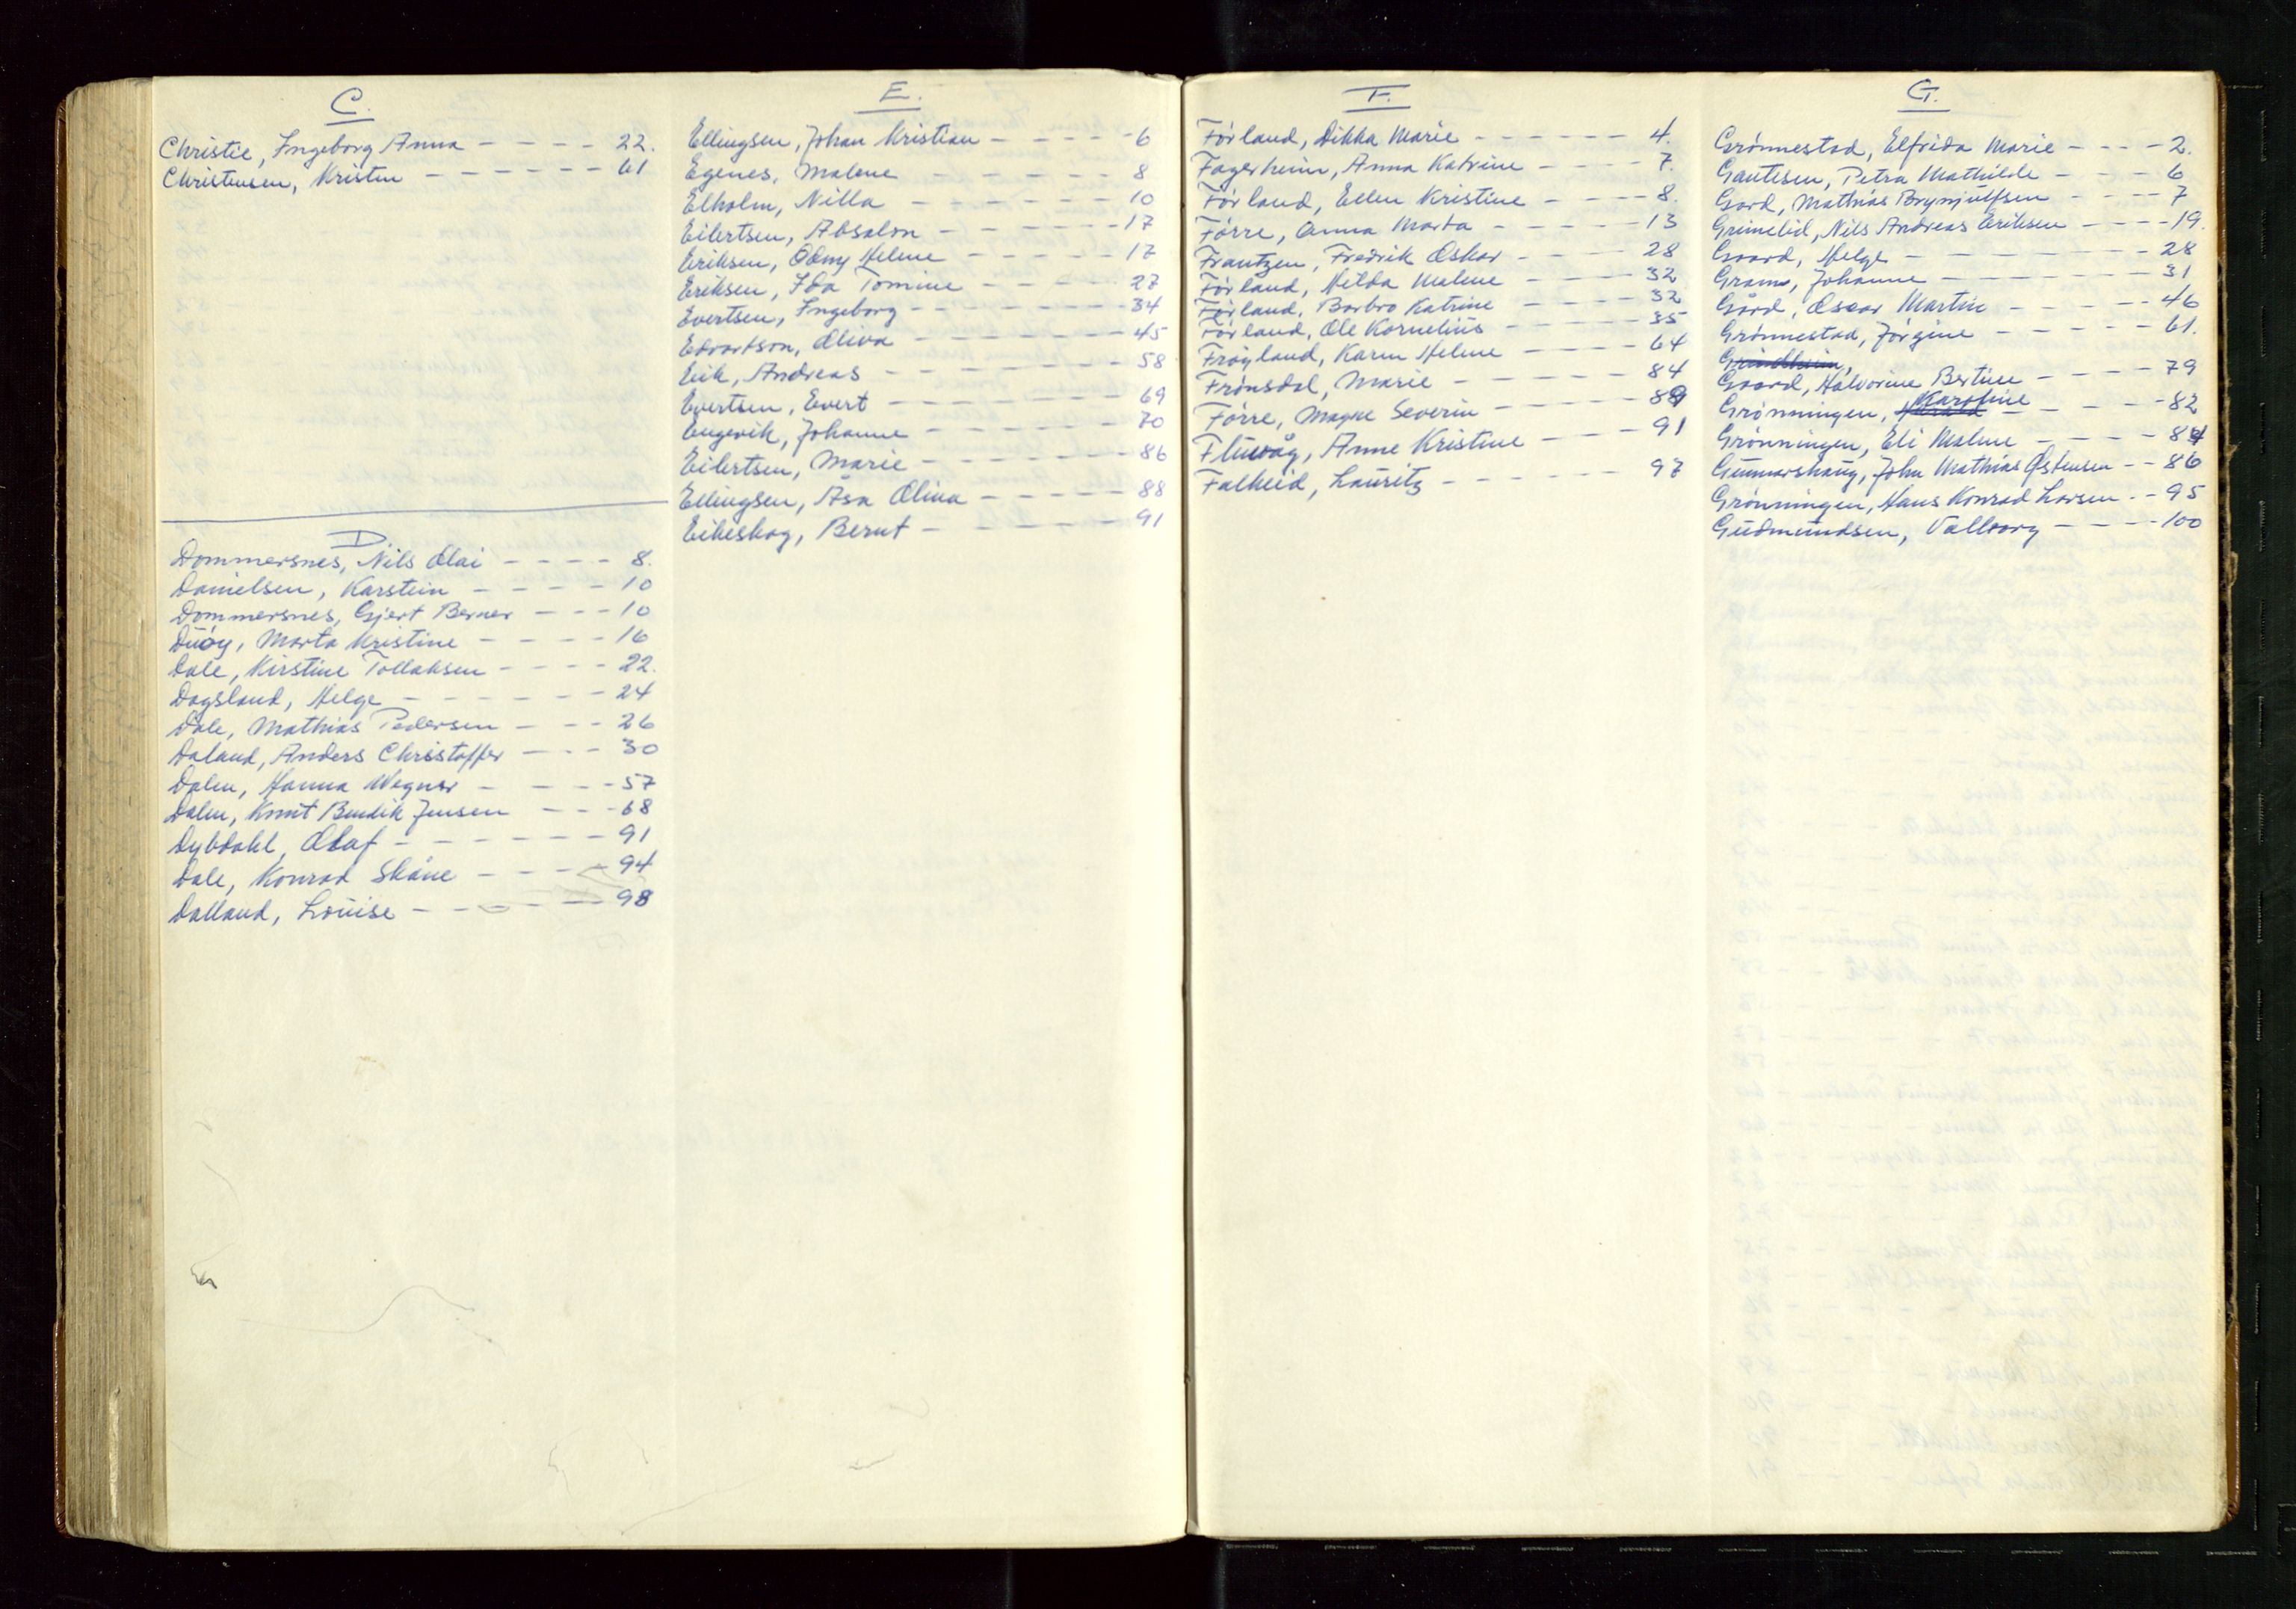 C.
Christie, Ingeborg Anna - - - - 22.
Christensen, Kristin - - - - - - 61
D
Dommersnes, Nils Olai - - - - 8.
Danielsen, Karstein - - - - - 10
Dommersnes, Gjert Berner - - - 10
Duöy, Marta Kristine - - - - 16
Dale, Kirstine Tollaksen - - - - 22.
Dagsland, Helge - - - - - - 24
Dale, Mathias Pedersen - - - 26
Daland, Anders Christoffer - - - 30
Dalen, Hanna Wegner - - - - 57
Dalen, Knut Bendik Jensen - - - 68
Dybdahl, Olaf - - - - - - 91
Dale, Konrad Skåne - - - - 94
Dalland, Louise - - - - - - 98
E.
Ellingsen, Johan Kristian - - - - - 6
Egenes, Malene - - - - - - 8
Elholm, Nilla - - - - - - 10
Eilertsen, Absalon - - - - - - 17
Eriksen, Odny Helene - - - - - 17
Eriksen, Ida Tomine - - - - - 27
Evertsen, Ingeborg - - - - - - 34
Edvartson, Oliva - - - - - - 45
Eik, Andreas - - - - - - - 58
Evertsen, Evert - - - - - - - 69
Engevik, Johanne - - - - - - 70
Eilertsen, Marie - - - - - - 86
Ellingsen, Åsa Olina - - - - - 88
Eikeskog, Bernt - - - - - - 91
F.
Förland, Dikka Marie - - - - - - 4.
Fagerheim, Anna Katrine - - - - 7.
Förland, Ellen Kristine - - - - 8.
Förre, Anna Marta - - - - - 13
Frantzen, Fredrik Oskar - - - - 28
Förland, Hilda Malene - - - - 32
Förland, Barbro Katrine - - - - 32
Förland, Ole Kornelius - - - - 35
Fröyland, Karen Helene - - - - 64
Frönsdal, Marie - - - - - 84
Förre, Magne Severin - - - - 89
Fluvåg, Anne Kristine - - - - 91
Falheid, Lauritz - - - - - 97
G.
Grönnestad, Elfrida Marie - - - - 2.
Gautesen, Petra Mathilde - - - - 6
Gard, Mathias Brynjulfsen - - - - 7
Grimelid, Nils Andreas Eriksen - - - - 19.
Gaard, Helge - - - - - - - 28
Gram, Johanne - - - - - - - 31
Gård, Oscar Martin - - - - - 46
Grönnestad, Jörgine - - - - - 61.
Grindheim,
Gaard, Halvorine Bertine - - - - 79
Grönningen, Karstine - - - - - 82
Grönningen, Eli Malene - - - - 84
Gunnarshaug, John Mathias Östensen - - 86
Grönningen, Hans Konrad Larsen - - 95
Gudmundsen, Valborg - - - - 100